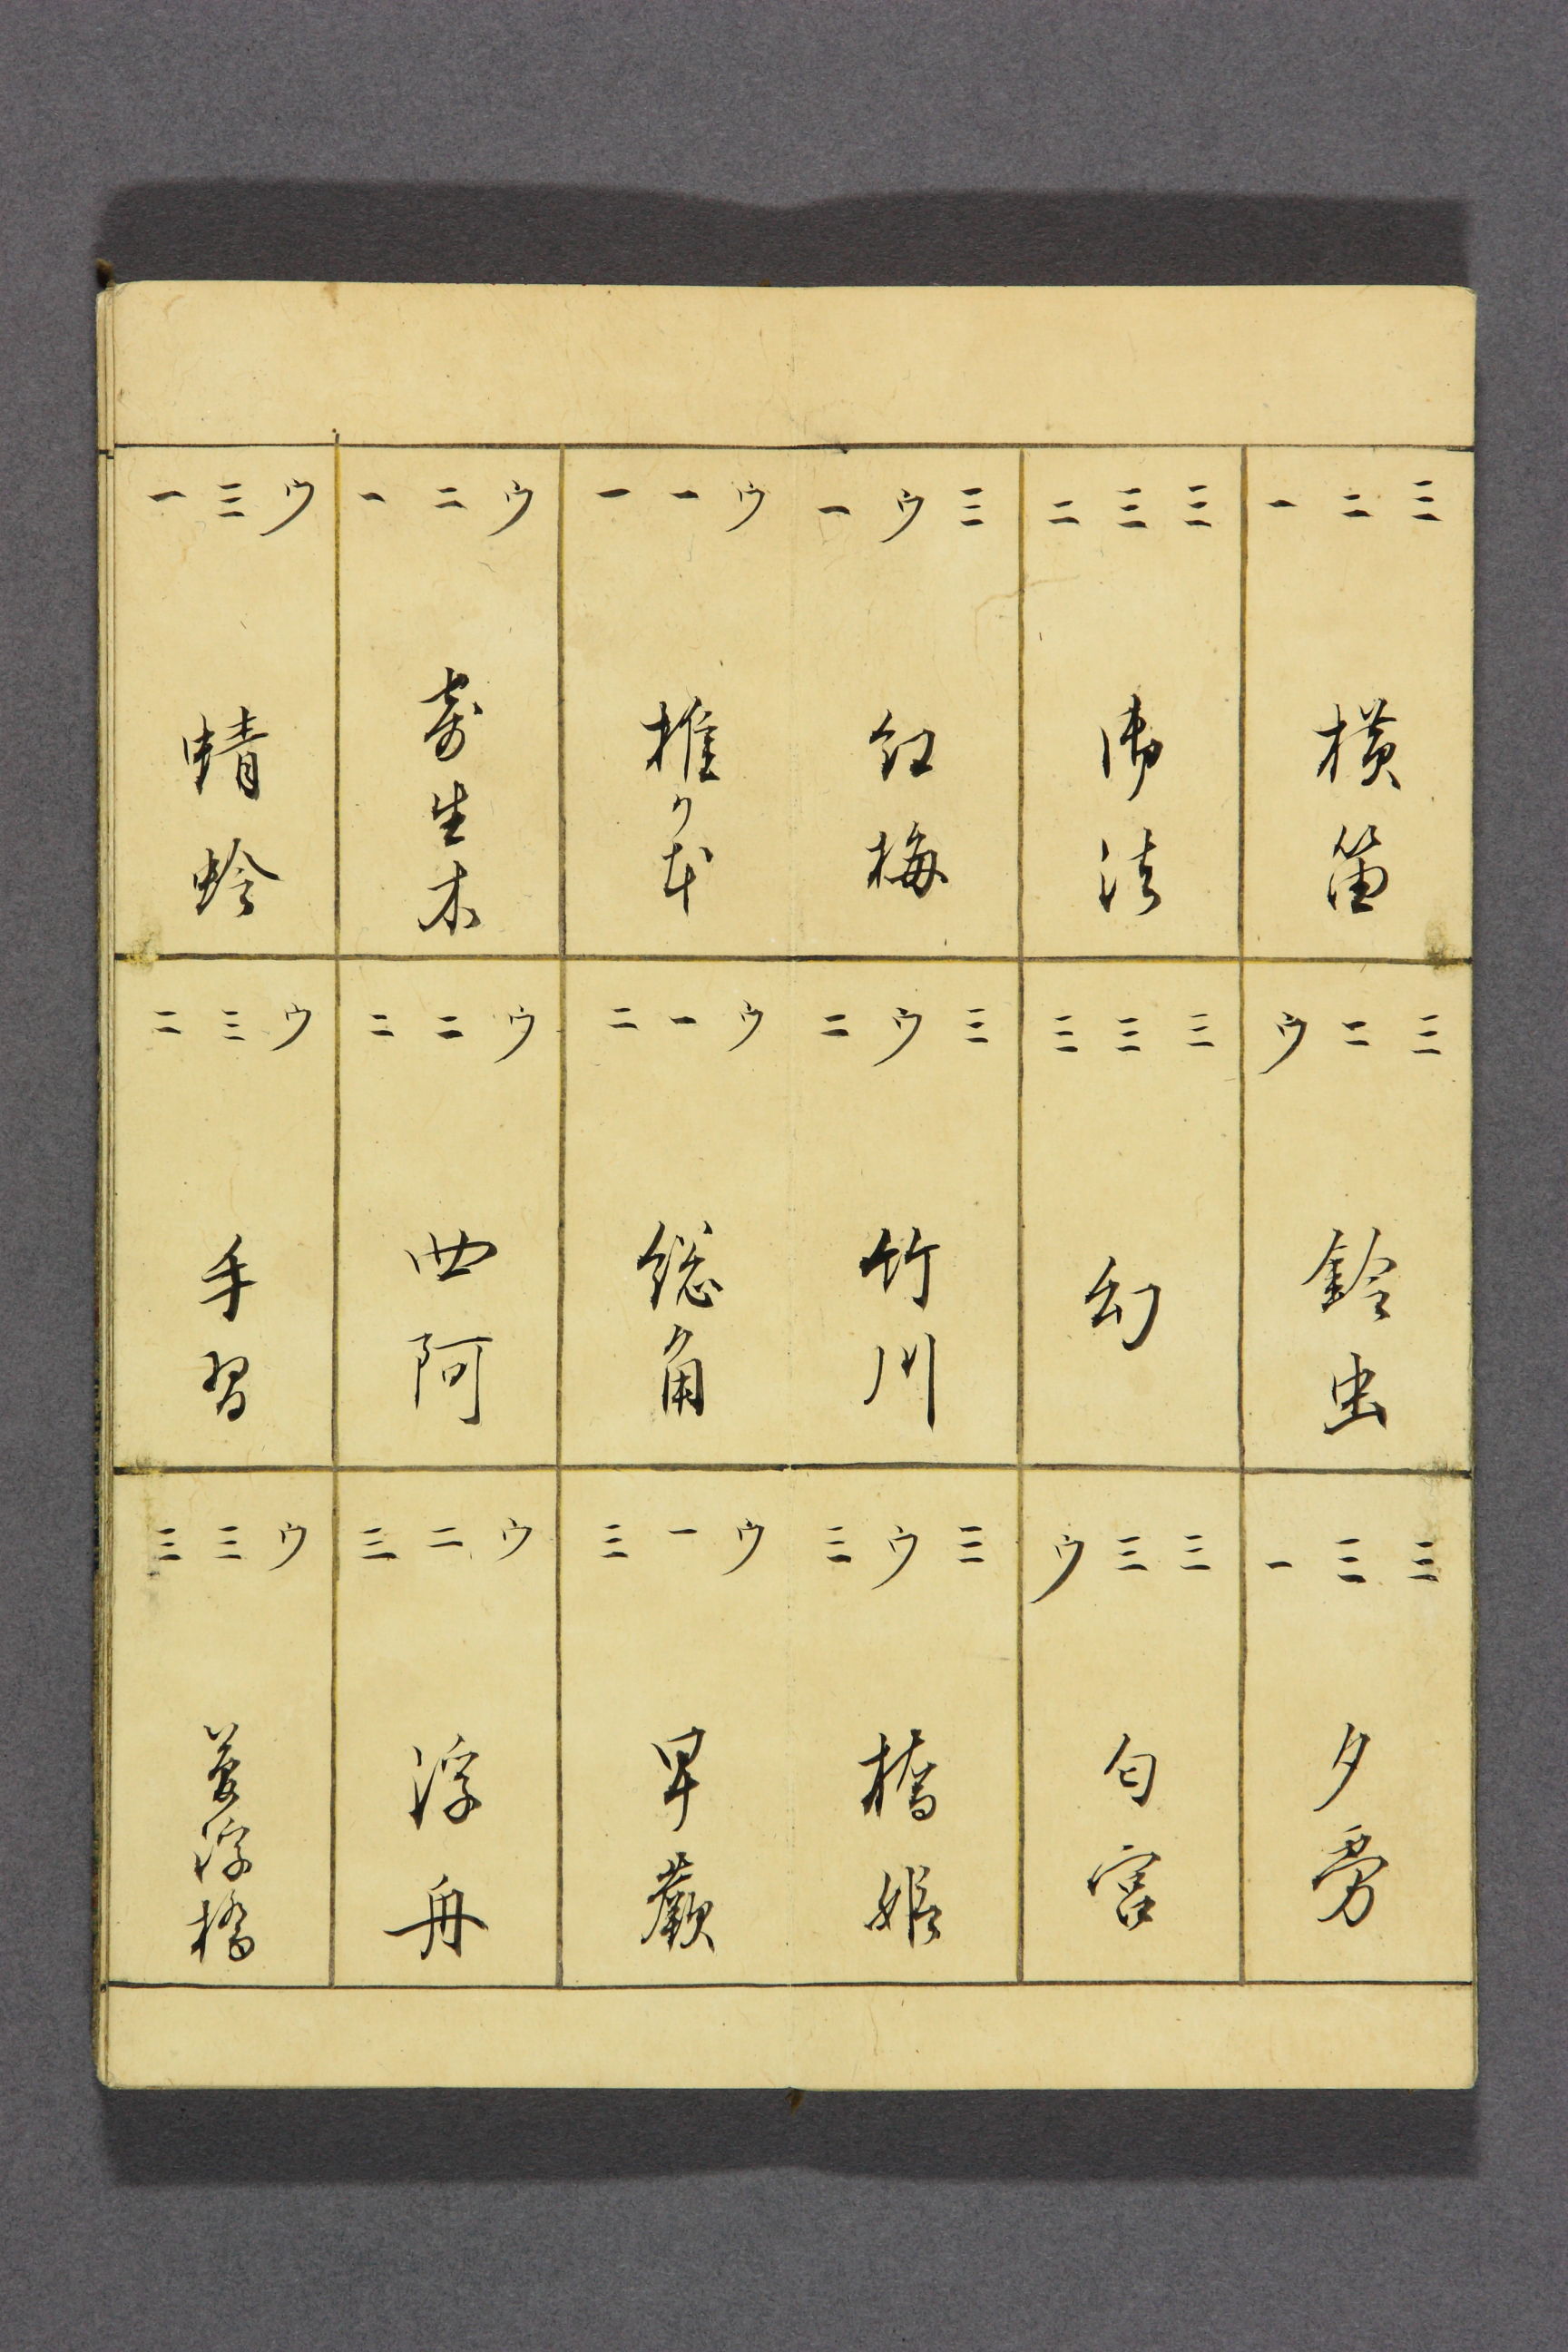 三二一
横笛
三二ウ
鈴虫
三三一
夕霧
三三二
御法
三三三
幻
三三ウ
匂宮
三ウ一
紅梅
三ウ二
竹川
三ウ三
橋姫
ウ一一
椎ケ本
ウ一二
総角
ウ一三
早蕨
ウ二一
寄生木
ウ二二
四阿
ウ二三
浮舟
ウ三一
蜻蛉
ウ三二
手習
ウ三三
夢浮橋